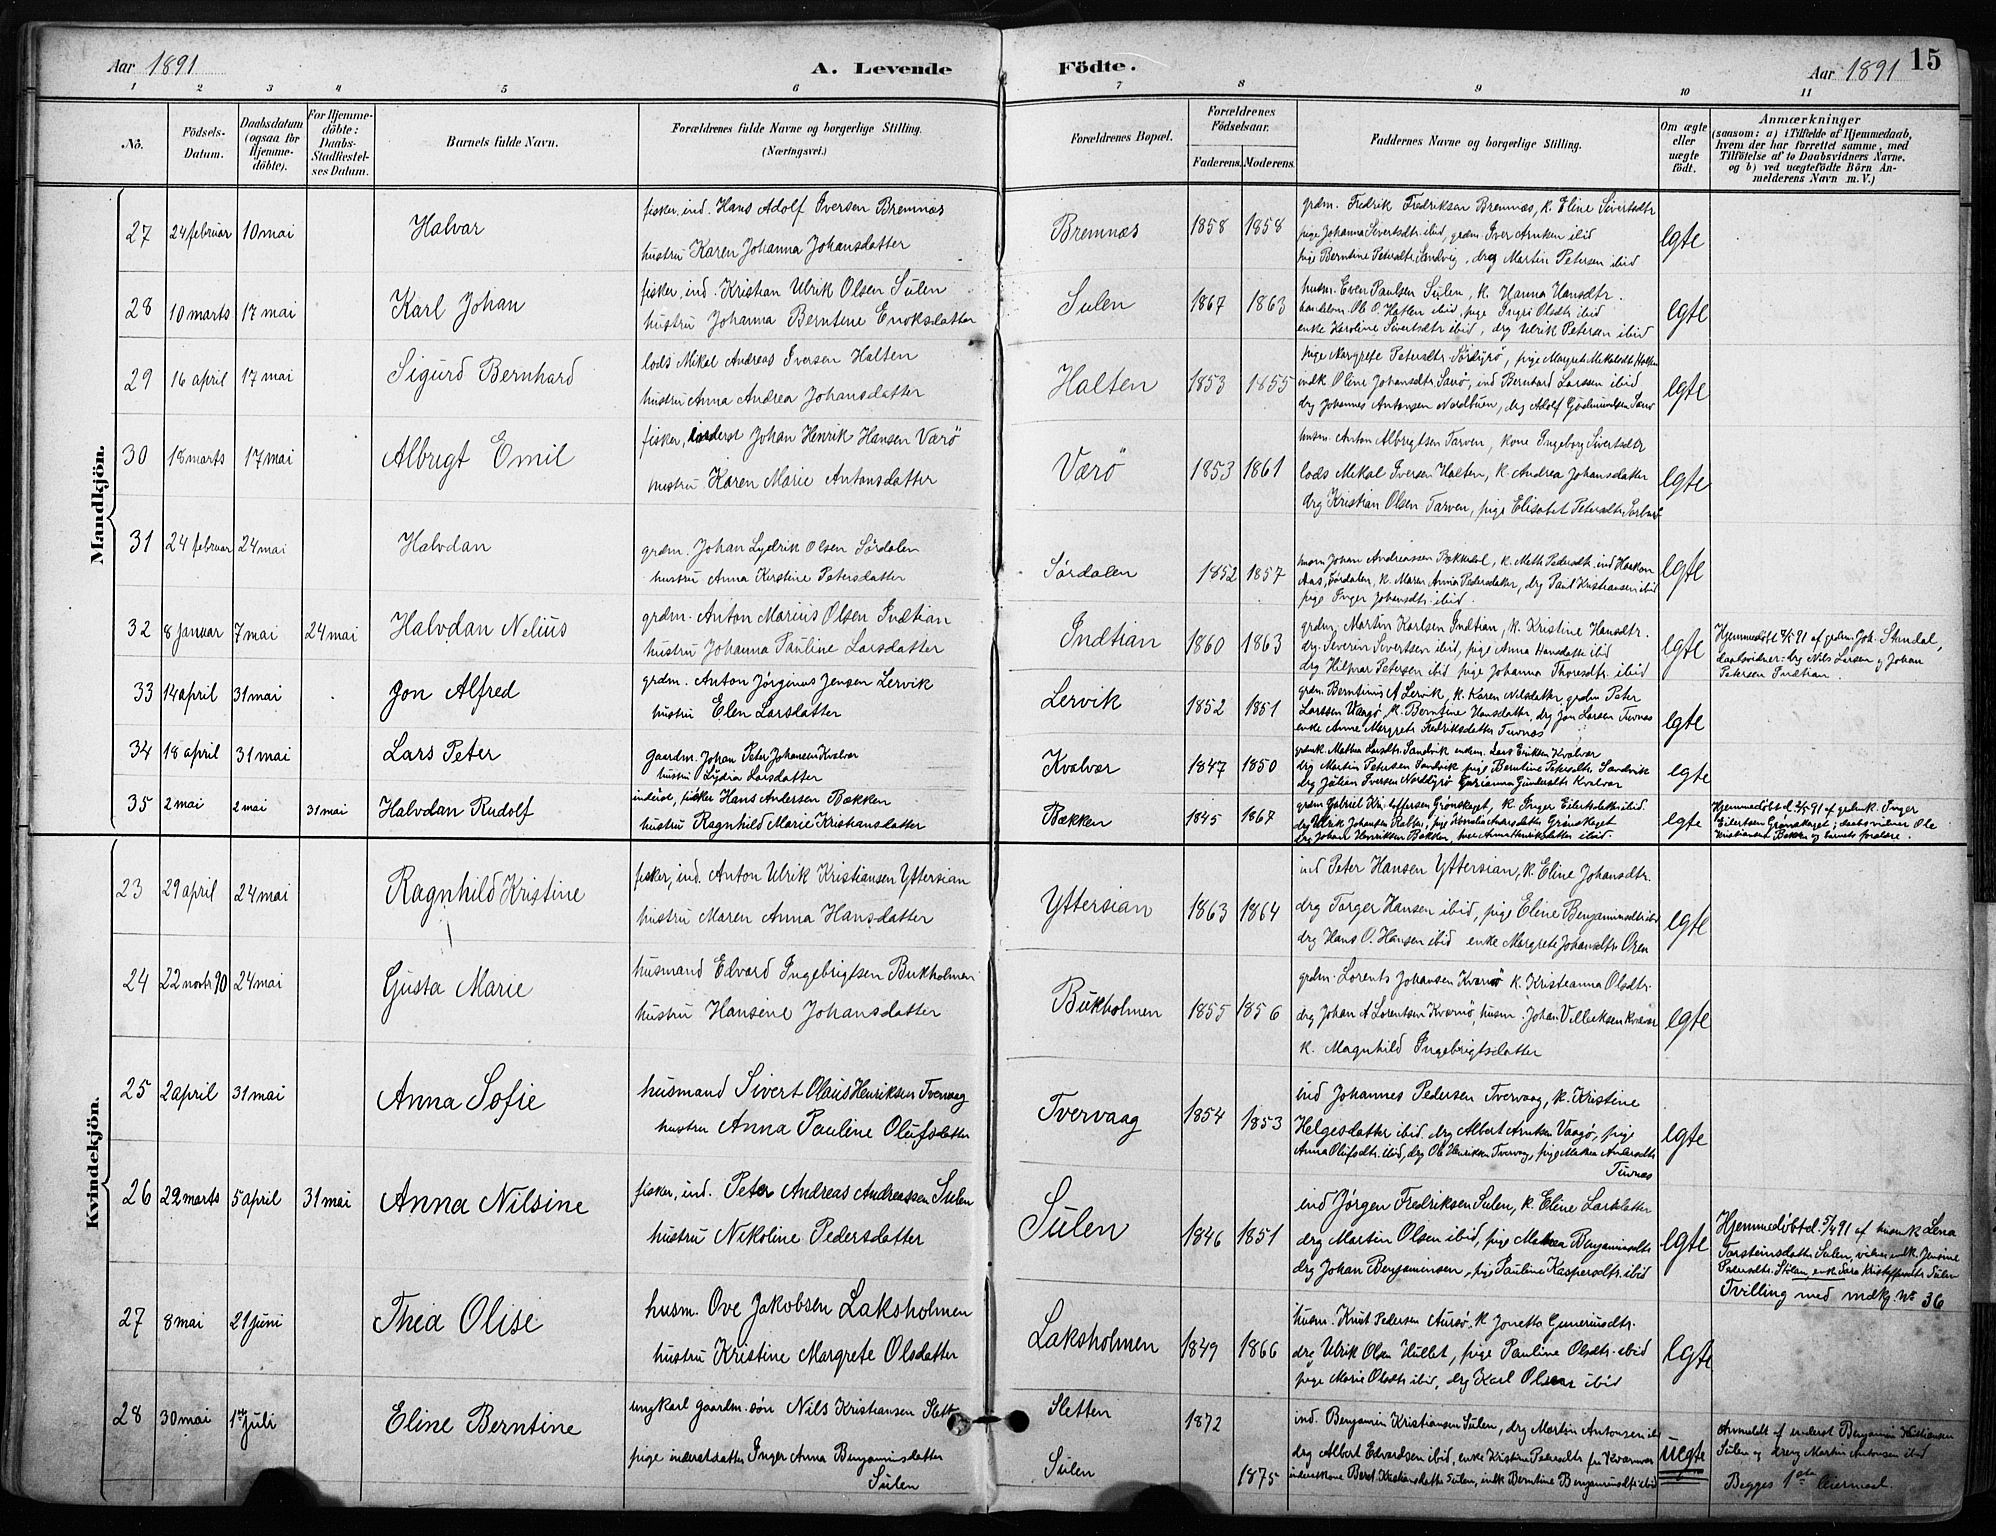 Aar 1891
A. Levende Födte.
Aar 1891
15
1 2 3 4 5 6 7 8 9 10 11
Nö.
Födsels-Datum.
Daabsdatum (ogsaa for Hjemme-döbte).
For Hjemme-döbte: Daabs-Stadfæstel-ses Datum.
Barnets fulde Navn.
Forældrenes fulde Navne og borgerlige Stilling.
(Næringsvei.)
Forældrenes Bopæl.
Forældrenes Födselsaar.
Faderens. Moderens.
Faddernes Navne og borgerlige Stilling.
Om ægte eller uægte födt.
Anmærkninger
(saasom: a) i Tilfælde af Hjemmedaab,
hvem der har forrettet samme, med
Tilföielse af to Daabsvidners Navne,
og b) ved uægtefödte Börn An-
melderens Navn m. V.)
Mandkjön.
27 24 februar 10 mai Halvar
fisker, ind. Hans Adolf Iversen Bremnæs
hustru Karen Johanna Johansdatter
Bremnæs 1858 1858
grdm. Fredrik Fredriksen Bremnæs, k. Eline Sivertsdtr
pige Johanna Sivertsdtr. ibid, grdm. Iver Arntsen ibid
pige Berntine Petersdtr. Sandvig, drg Martin Petersen ibid
egte
28 10 marts 17 mai Karl Johan
fisker, ind. Kristian Ulrik Olsen Sulen
hustru Johanna Berntine Enoksdatter
Sulen 1867 1863
husm. Even Paulsen Sulen, k. Hanna Hansdtr.
Ole O. Halten ibid, pige Ingri Olsdtr ibid
enke Karoline Sivertsdtr ibid, drg Ulrik Petersen ibid
egte
29 16 april 17 mai Sigurd Bernhard
lods Mikal Andreas Iversen Halten
hustru Anna Andrea Johansdatter
Halten 1853 1855
pige Margrete Petersdtr. Sördyrö, pige Margrete Mikalsdtr Halten
indk Oline Johansdtr. Sauö, ind Bernhard Larssen ibid
drg Johannes Antonsen Nordbuen, drg Adolf Gudmundsen Sauö
egte
30 18 marts 17 mai Albrigt Emil
fisker, inderst Johan Henrik Hansen Værö
hustru Karen Marie Antonsdatter
Værö 1853 1861
husm. Anton Albrigtsen Tarven, kone Ingeborg Sivertsdtr
lods Mikal Iversen Halten, k. Andrea Johansdatter
drg Kristian Olsen Tarven, pige Elisabet Petersdtr
egte
31 24 februar 24 mai Halvdan
grdm. Johan Lydrik Olsen Sördalen
hustru Anna Kirstine Petersdatter
Sördalen 1852 1857
husm Johan Andreassen Bækkedal, k. Mette Pedersdtr. ind Haakon
Aas, Sördalen, k. Maren Anna Pedersdatter, drg Paul Kristiansen ibid
pige Inger Johansdtr. ibid.
egte
32 8 januar 7 mai 24 mai Halvdan Nelius
grdm. Anton Marius Olsen Indtian
hustru Johanna Pauline Larsdatter
Indtian 1860 1863
grdm. Martin Karlsen Indtian, k. Kristine Hansdtr.
drg. Severin Sivertsen ibid, pige Anna Hansdatter ibid
drg Hilmar Petersen ibid pige Johanna Thoresdtr. ibid
egte
Hjemmedöbt 7/5 91 af grdm. Joh. Stendal,
daabsvidner: drg Nils Larsen og Johan
Petersen Indtian.
33 14 april 31 mai Jon Alfred
grdm. Anton Jörginus Jensen Lervik
hustru Elen Larsdatter
Lervik 1852 1851
grdm Berntinus A Lervik, k. Karen Nilsdatter, grdm Peter
Larssen Vaagö, k. Berntine Hansdatter, drg Jon Larsen Tuvnæs
enke Anne Margrete Fredriksdatter Tuvnæs
egte
34 18 april 31 mai Lars Peter
Gaardm. Johan Peter Johansen Kvalvær
hustru Lydia Larsdatter
Kvalvær 1847 1850
grdmk. Mathea Larsdtr. Sandvik enkem. Lars Eriksen Kvalvær
drg Martin Petersen Sandvik pige Berntine Petersdtr. Sandvik
drg Julian Iversen Norddyrö Kvalvær
egte
35 2 mai 2 mai 31 mai Halvdan Rudolf
inderst, fisker Hans Andersen Bækken
hustru Ragnhild Marie Kristiansdatter
Bækken 1845 1867
grdm Gabriel Kristoffersen Grönskaget, k. Inger Eilertsdatter ibid.
drg Ulrik Johansen Andersdatter Grönskaget
drg Johan Henriksen Bækken, pige Anna Henriksdatter ibid.
egte
Hjemmedöbt d 2/5 91 af Inger
Eilertsen Grönskaget; daabsvidner Ole
Kristiansen Bække og barnets forældre.
Kvindekjön.
23 29 april 24 mai Ragnhild Kristine
fisker, ind. Anton Ulrik Kristiansen Yttersian
hustru Maren Anna Hansdatter
Yttersian 1863 1864
ind Peter Hansen Yttersian, k. Eline Johansdtr.
drg Torger Hansen ibid, pige Eline Benjaminsdtr ibid
drg Hans O. Hansen ibid enke Margrete Johansdtr. Oren
egte
24 22 novbr 90 24 mai Gusta Marie
husmand Edvard Ingebrigtsen Bukholmen
hustru Hansine Johansdatter
Bukholmen 1855 1856
grdm. Lorents Johansen Kvernö k. Kristianna Olsdtr.
drg Johan A Lorentsen Kvernö, husm. Johan Villiksen Kvalvær
k. Magnhild Ingebrigtsdatter
egte
25 2 april 31 mai Anna Sofie
husmand Sivert Olaus Henriksen Tvervaag
hustru Anna Pauline Olufsdatter
Tvervaag 1854 1853
ind Johannes Pedersen Tvervaag, k. Kristine
Helgesdatter ibid. drg Albert Arntsen Vaagö, pige
Anna Olufsdtr. ibid, drg Ole Henriksen Tvervaag, pige Mathea Andersdtr
Tuvnæs
egte
26 22 marts 5 april 31 mai Anna Nilsine
fisker, ind. Peter Andreas Andreassen Sulen
hustru Nikoline Pedersdatter
Sulen 1846 1851
ind Jörgen Fredriksen Sulen, k. Eline Larsdatter
drg Martin Olsen ibid, pige Mathea Benjaminsdtr
drg Johan Benjaminsen, pige Pauline Kaspersdtr. ibid
egte
Hjemmedöbt d. 5/4 91 af husmk Lena
Torsteinsdatter Sulen, vidner indk. Jensine
Petersdtr. Sulen, enke Sara Kristoffersdtr. Sulen
Tvilling med mdkj. No 36
27 8 mai 21 juni Thea Olise
husm. Ove Jakobsen Laksholmen
hustru Kristine Margrete Olsdatter
Laksholmen 1849 1866
husm. Knut Pedersen Aursö, k Jonetta Guneriusdtr.
drg Ulrik Olsen Hullet, pige Pauline Olsdtr. ibid
pige Marie Olsdtr ibid, drg Karl Olsen ibid
egte
28 30 mai 1ste juli Eline Berntine
ungkarl gaardm. sön Nils Kristiansen Slett
pige inderstdatter Inger Anna Benjaminsdatter
Sulen
Sletten 1872
Sulen 1875
ind. Benjamin Kristiansen Sulen, drg Martin Antonsen ibid
drg Albert Edvardsen ibid, enke Kristine Petersdtr fra Kvernvær
inderstkone Beret Kristiansdatter Sulen, indk Berntine Benjaminsdtr ibid
uegte
Anmeldt af inderst Benjamin Kristiansen
Sulen og dreng Martin Antonsen ibid
Begges 1ste leiermaal.